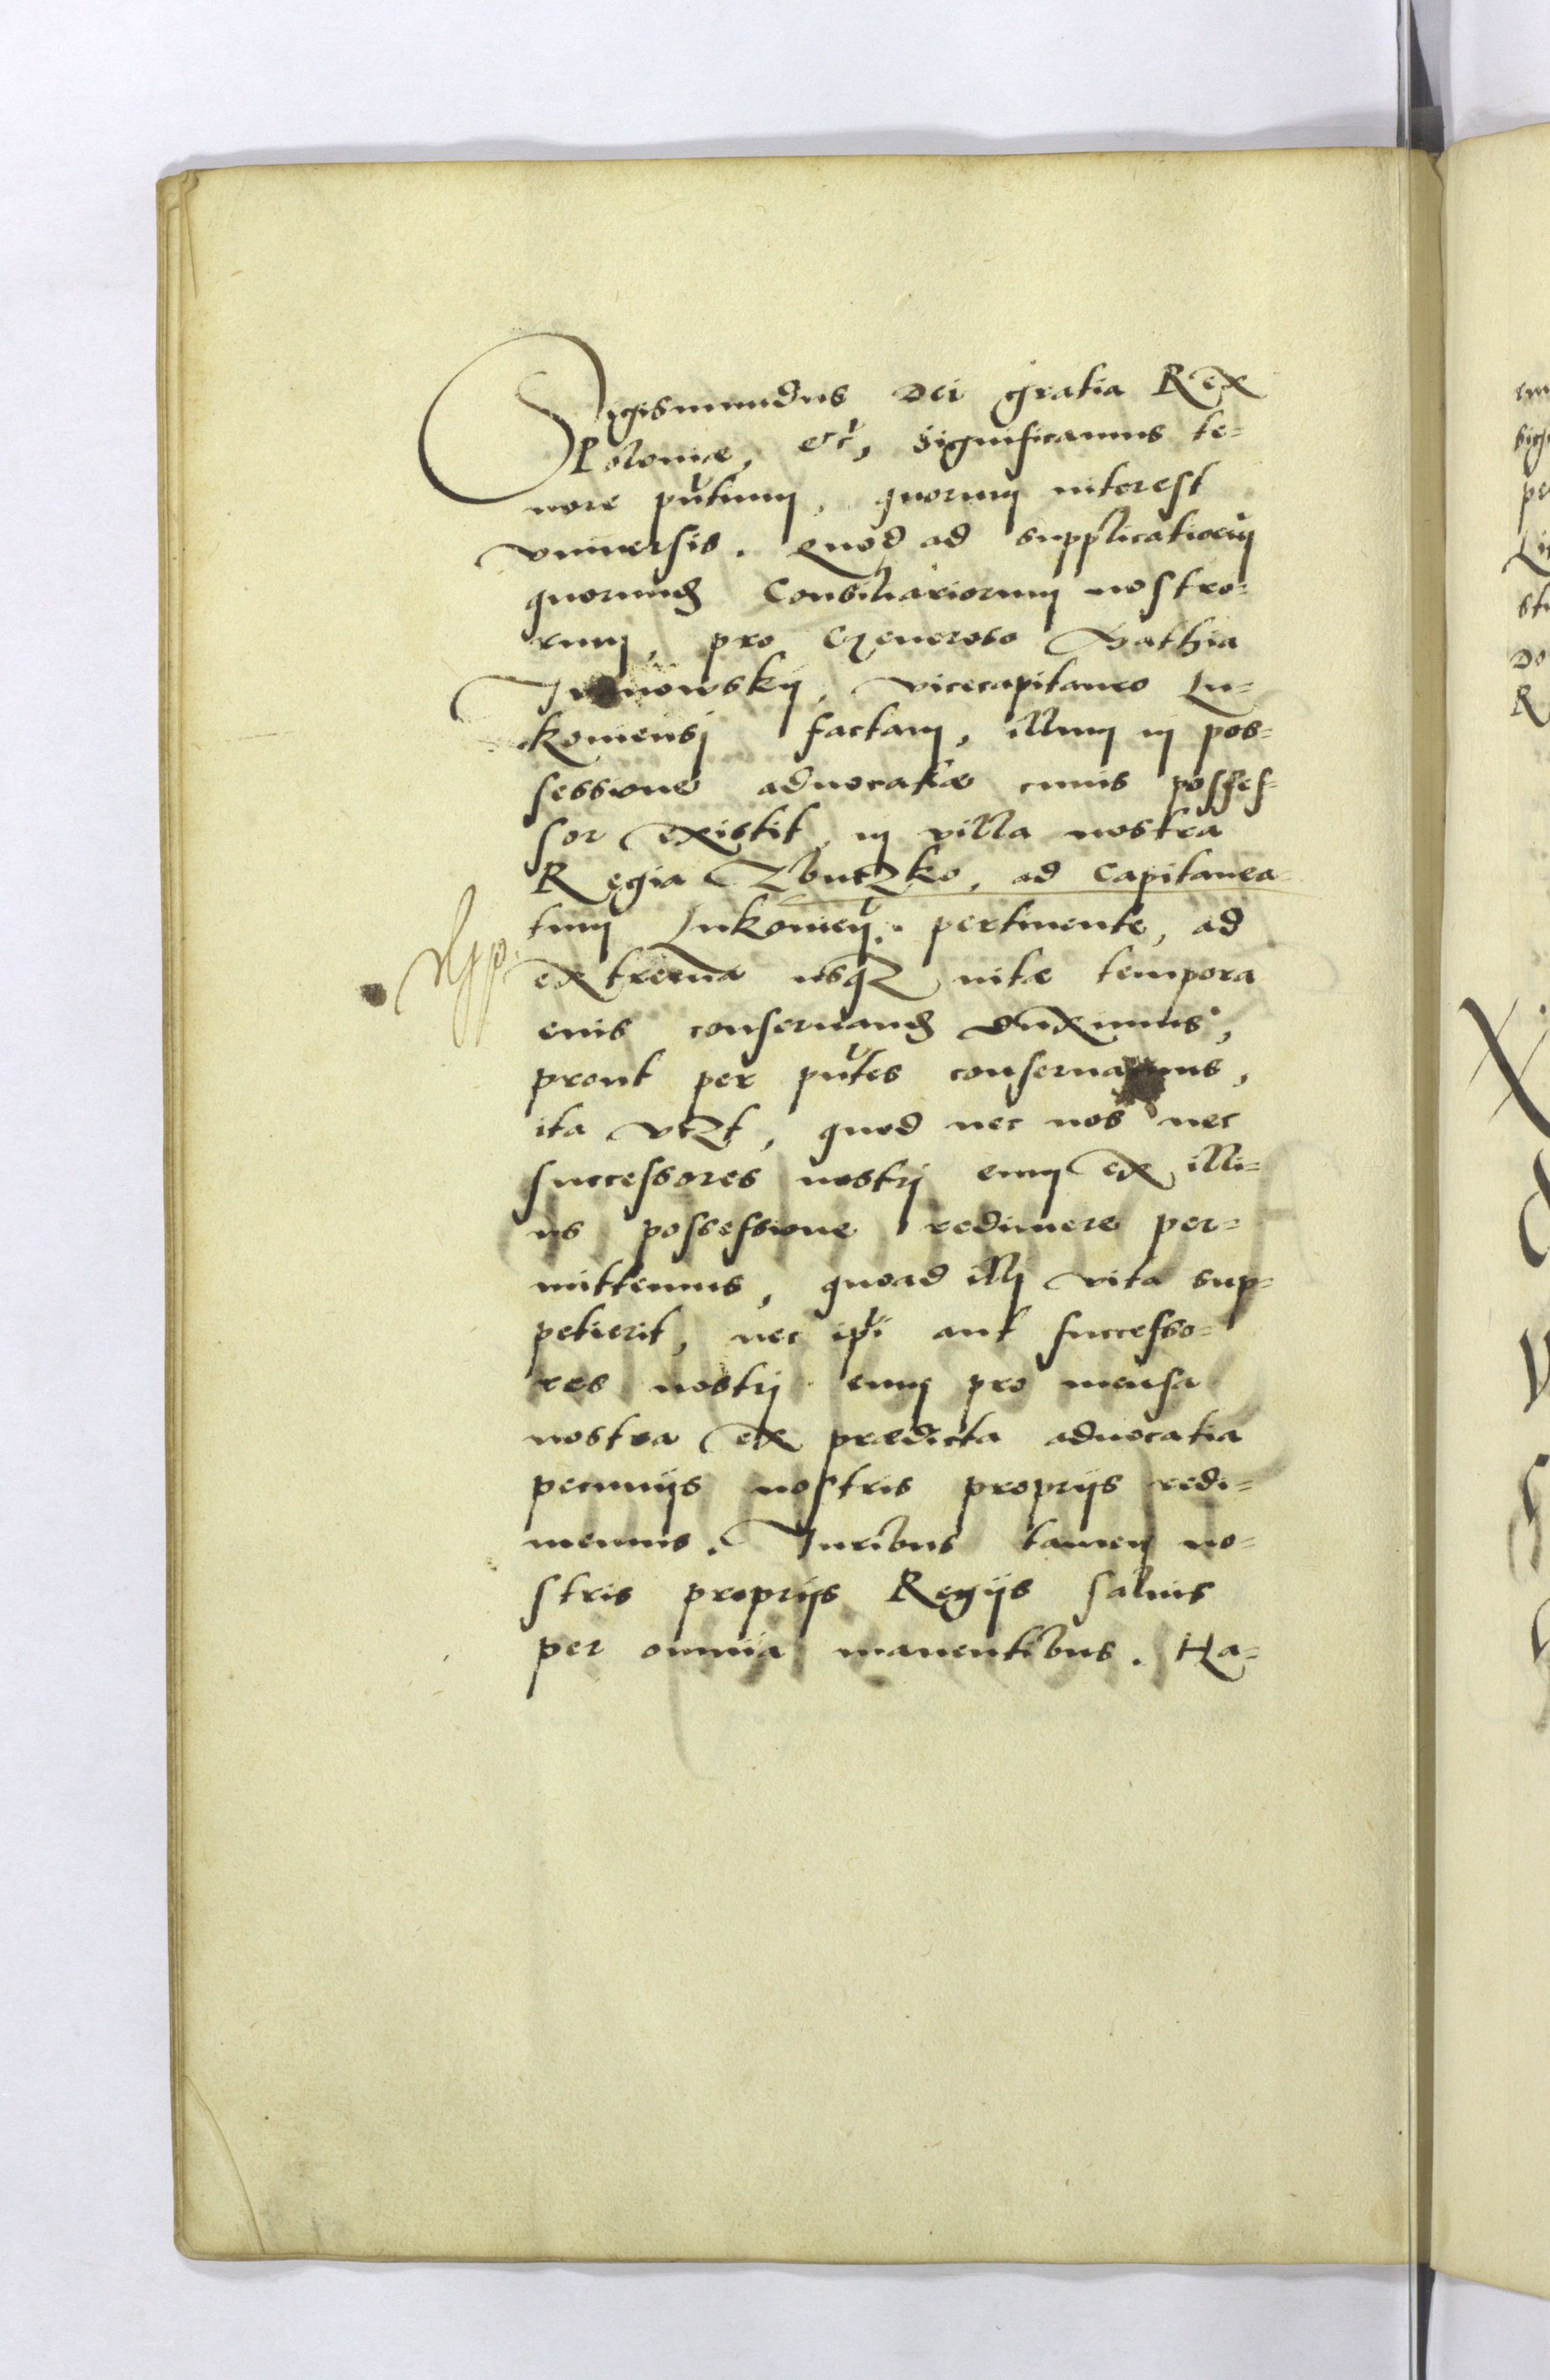 Sigismundus Dei gratia Rex
Poloniæ, etc, Significamus te=
nore pñtium, quorum interest
vniuersis. Quod ad supplicationem
quorund Consiliariorum nostro=
rum, pro Generoso Mathia
vicecapitaneo Lu=
koviensj factam, illum in pos=
sessione aduocatiæ cuius posses=
sor existit in villa nostra
Regia Zbutzko, ad Capitanea=
tum Lukoviẽn. pertinente, ad
extrema usqz vitæ tempora
eius conseruand duximus,
prout per pñtes conseruamus,
ita vtzt, quod nec nos nec
successores nostrj eum ex illi=
us possessione redimere per=
mittemus, quoad illj vita sup=
petierit, nec ipi aut successo=
res nostrj eum pro mensa
nostra ex prædicta aduocatia
pecunijs nostris proprijs redi=
memus. Iuribus tamen no=
stris proprijs Regijs saluis
per omnia manentibus. Ha=